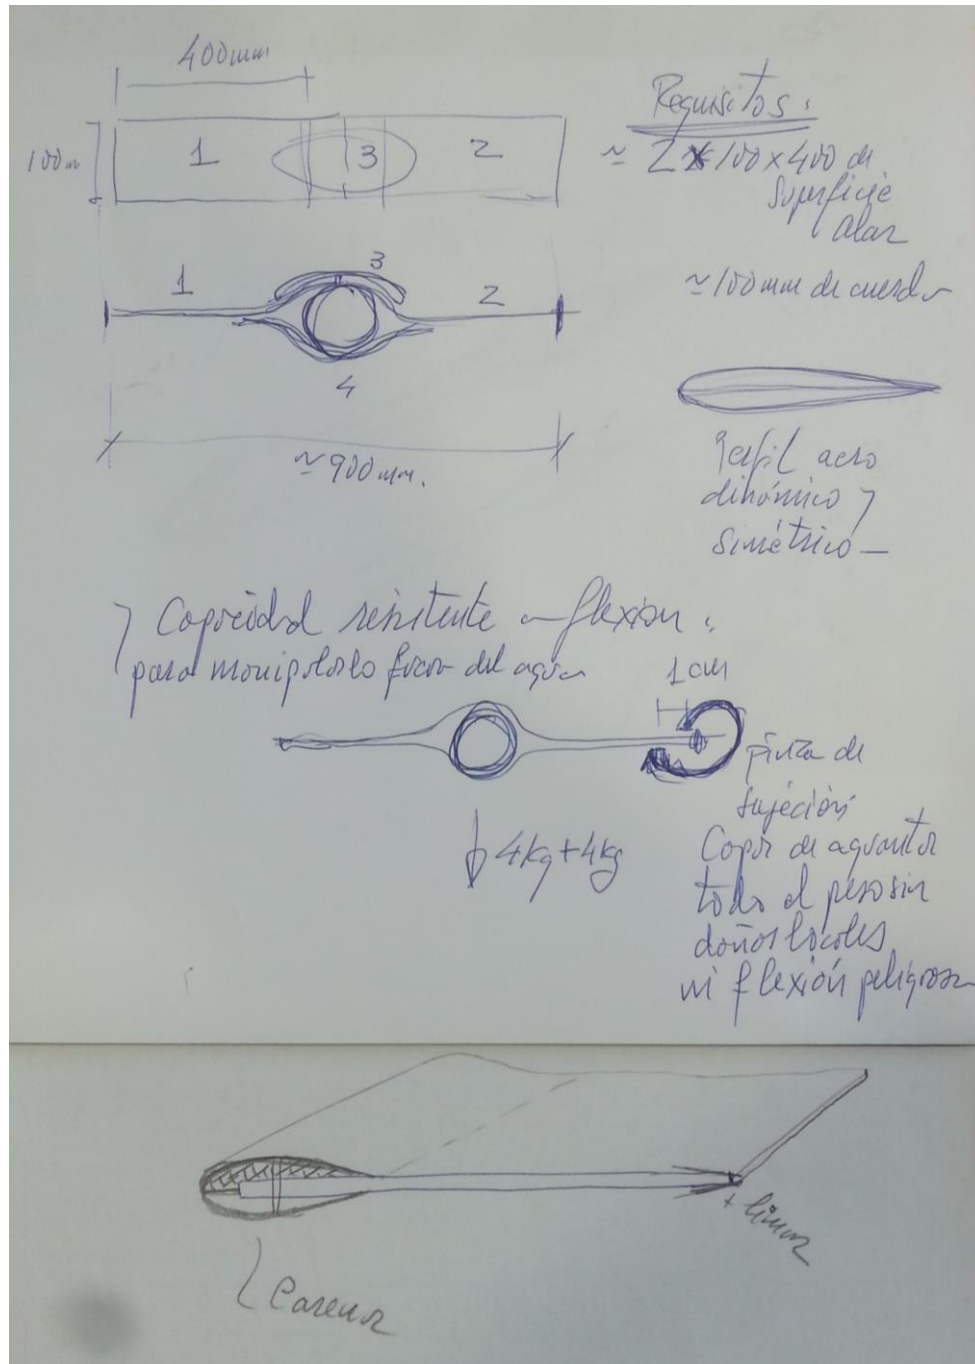 400mm
Requisitos:
100m
1
3
2
≈ 2x100x400 de
superficie
alar
1
3
2
≈100mm de cuerda
4
≈900mm.
Perfil aero
dinámico y
simétrico
y Capacidad resistente a flexión:
para manipularlo fuera del agua
1cm
pinza de
sujeción
4kg+4kg
Capaz de aguantar
todo el peso sin
daños locales
ni flexión peligrosa
+ limar